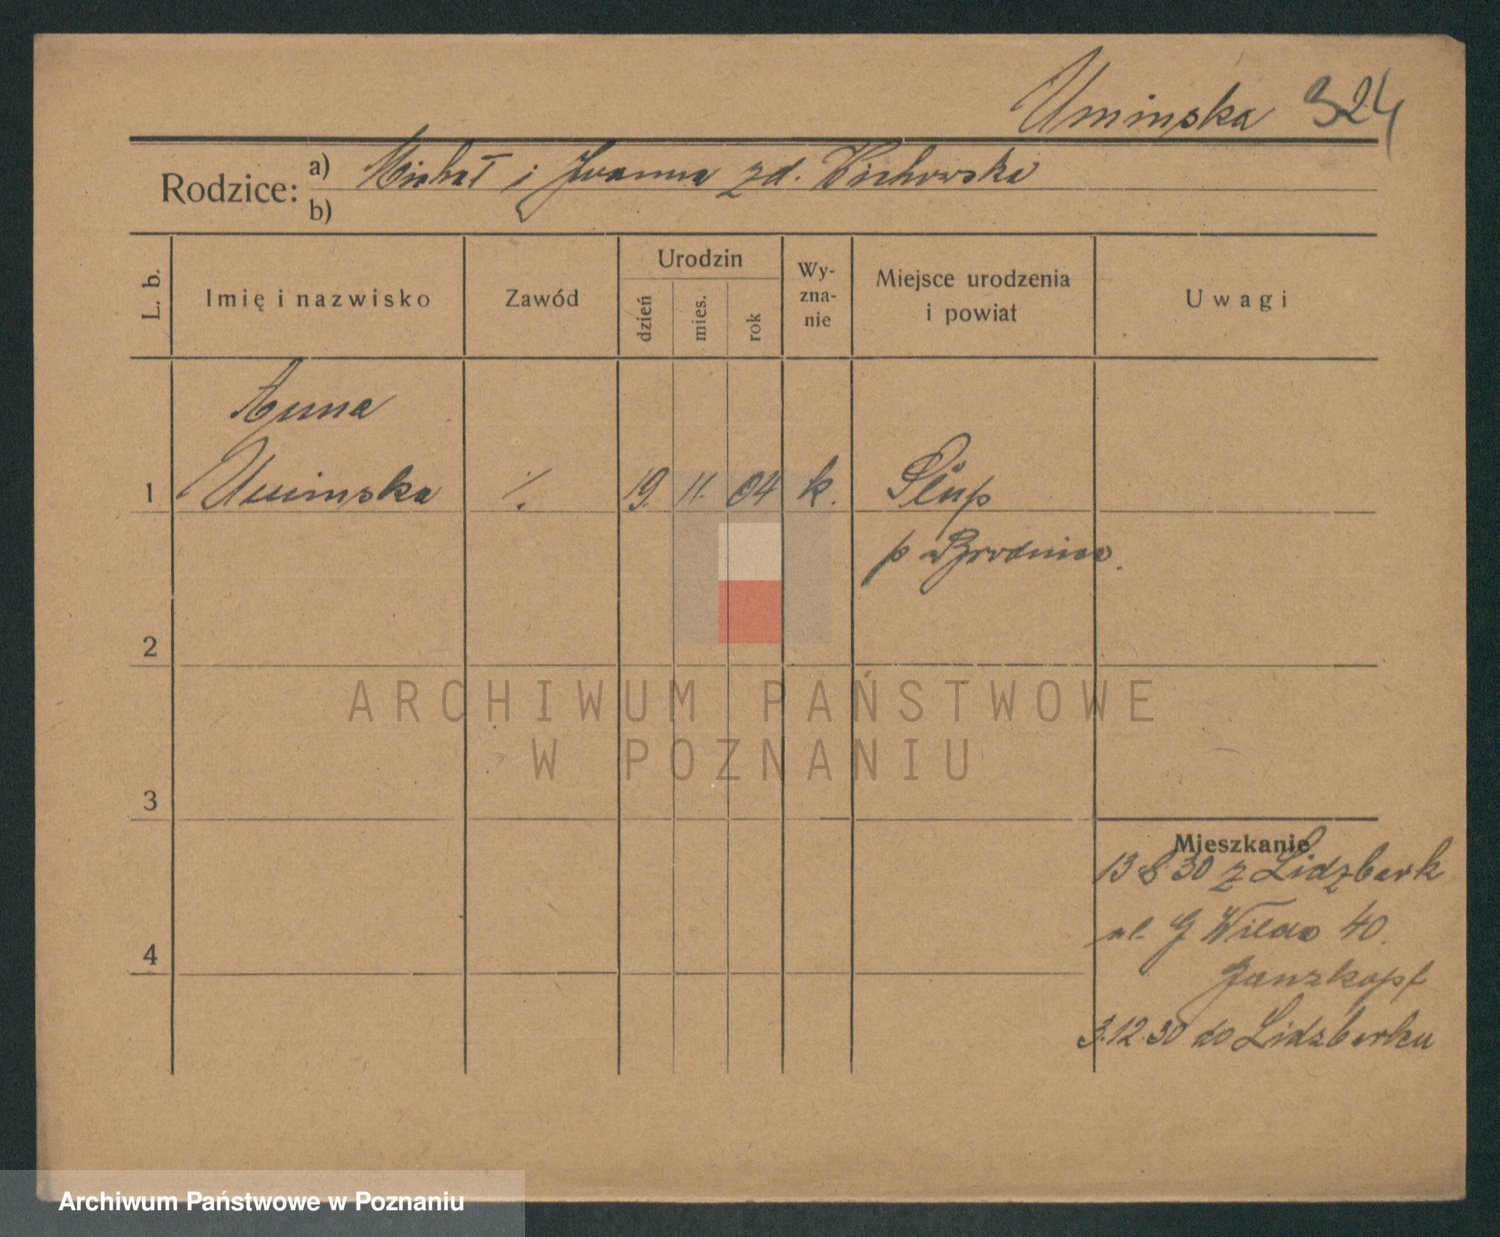 Uminska 324
Rodzice: a) Michał i Joanna zd. Wichowska
b)
L. b.
Imię i nazwisko
Zawód
Urodzin
dzień
mies.
rok
Wy-
zna-
nie
Miejsce urodzenia
i powiat
Uwagi
Anna
1 Uminska ·/. 19. 11. 04 k. Słup
p Brodnica.
2
ARCHIWUM PAŃSTWOWE
W POZNANIU
3
Mieszkanie
13 8 30 z Lidzbark
ul. G Wilda 40.
4
3.12.30 do Lidzbarku
Archiwum Państwowe w Poznaniu